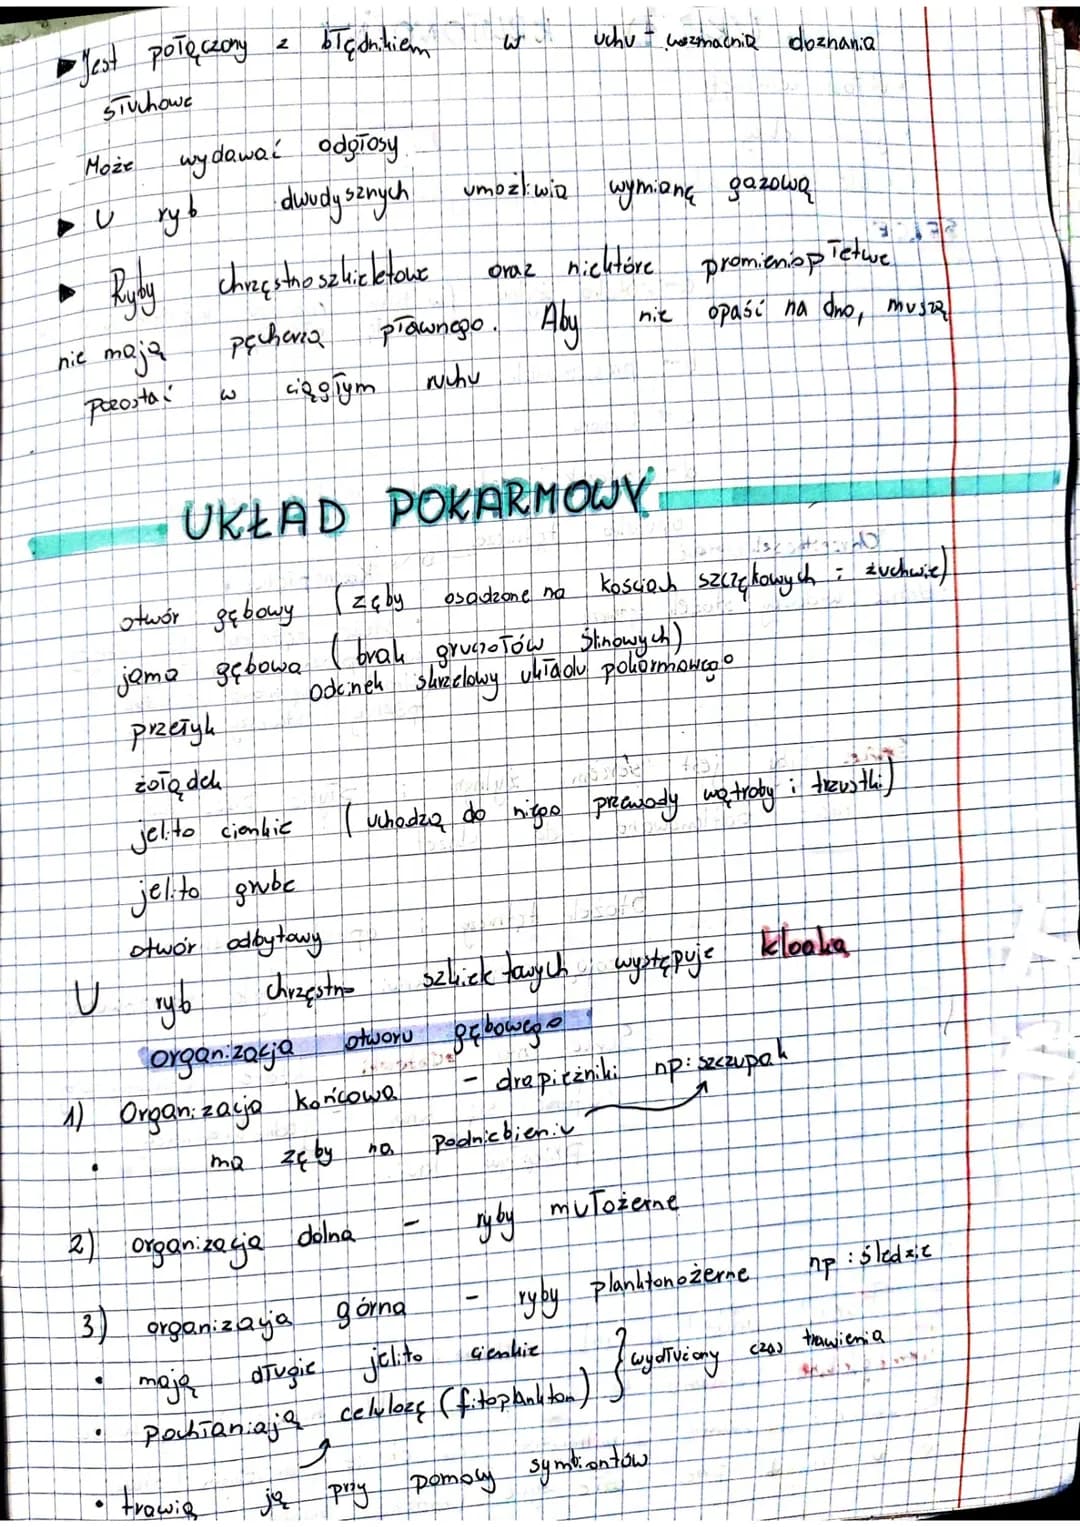 ▶ Jest połączony z błędnikiem w uchu - wzmacnia doznania
słuchowe
Może wydawać odgłosy
▶ U ryb dwudysznych umożliwia wymianę gazową
▶ Ryby chrzęstnoszkieletowe oraz niektóre promieniopłetwe
nie mają pęcherza pławnego. Aby nie opaść na dno, muszą
pozostać w ciągłym ruchu
UKŁAD POKARMOWY
otwór gębowy (zęby osadzone na kościach szczękowych i żuchwie)
jama gębowa (brak gruczołów ślinowych)
odcinek skrzelowy układu pokarmowego
przełyk
żołądek
jelito cienkie (uchodzą do niego przewody wątroby i trzustki)
jelito grube
otwór odbytowy
U ryb chrzęstno szkieletowych występuje kloaka
organizacja otworu gębowego
1) Organizacja końcowa - drapieżniki np: szczupak
• ma zęby na podniebieniu
2) organizacja dolna - ryby mułożerne
3) organizacja górna - ryby planktonożerne np: śledzie
• mają długie jelito cienkie } wydłużony czas trawienia
• pochłaniają celulozę (fitoplankton)
• trawią ją przy pomocy symbiontów